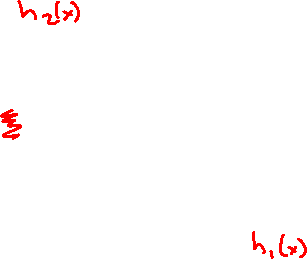 h₂(x)
h₁(x)